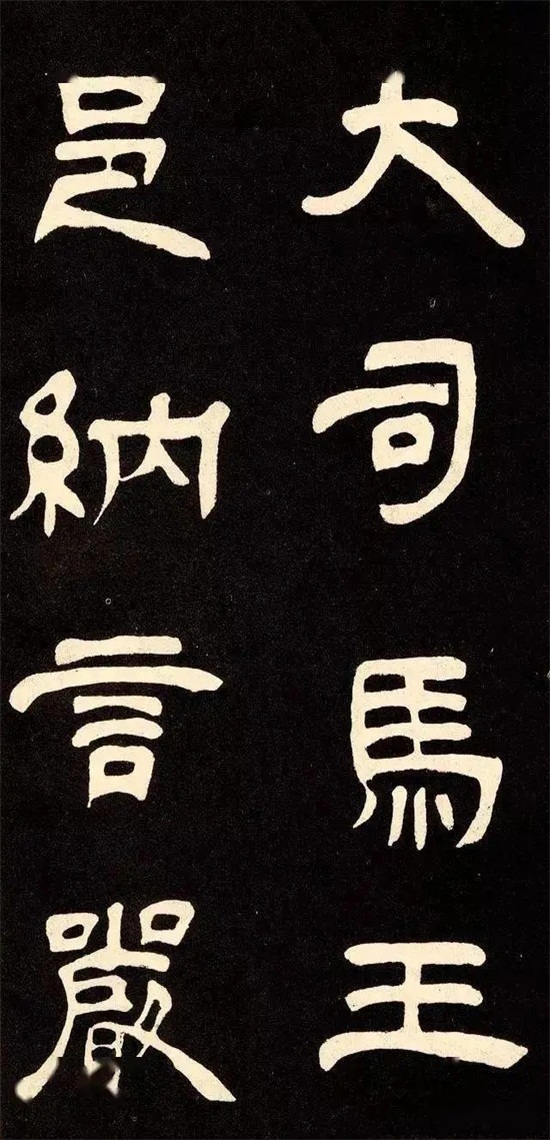 大司馬王
邑納言嚴